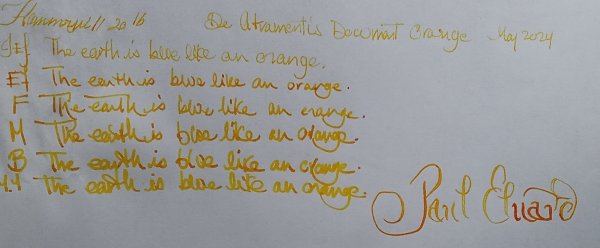 Hammermill 20 lb De Atramentis Document Orange May 2024
EF The earth is blue like an orange.
EF The earth is blue like an orange.
F The earth is blue like an orange.
M The earth is blue like an orange.
B The earth is blue like an orange.
1.1 The earth is blue like an orange.
Paul Eluard